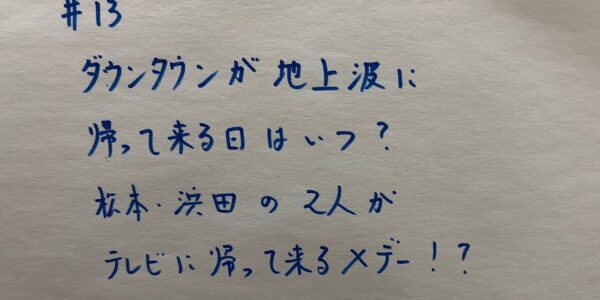 #13
ダウンタウンが地上波に
帰って来る日はいつ?
松本・浜田の2人が
テレビに帰って来るXデー!?